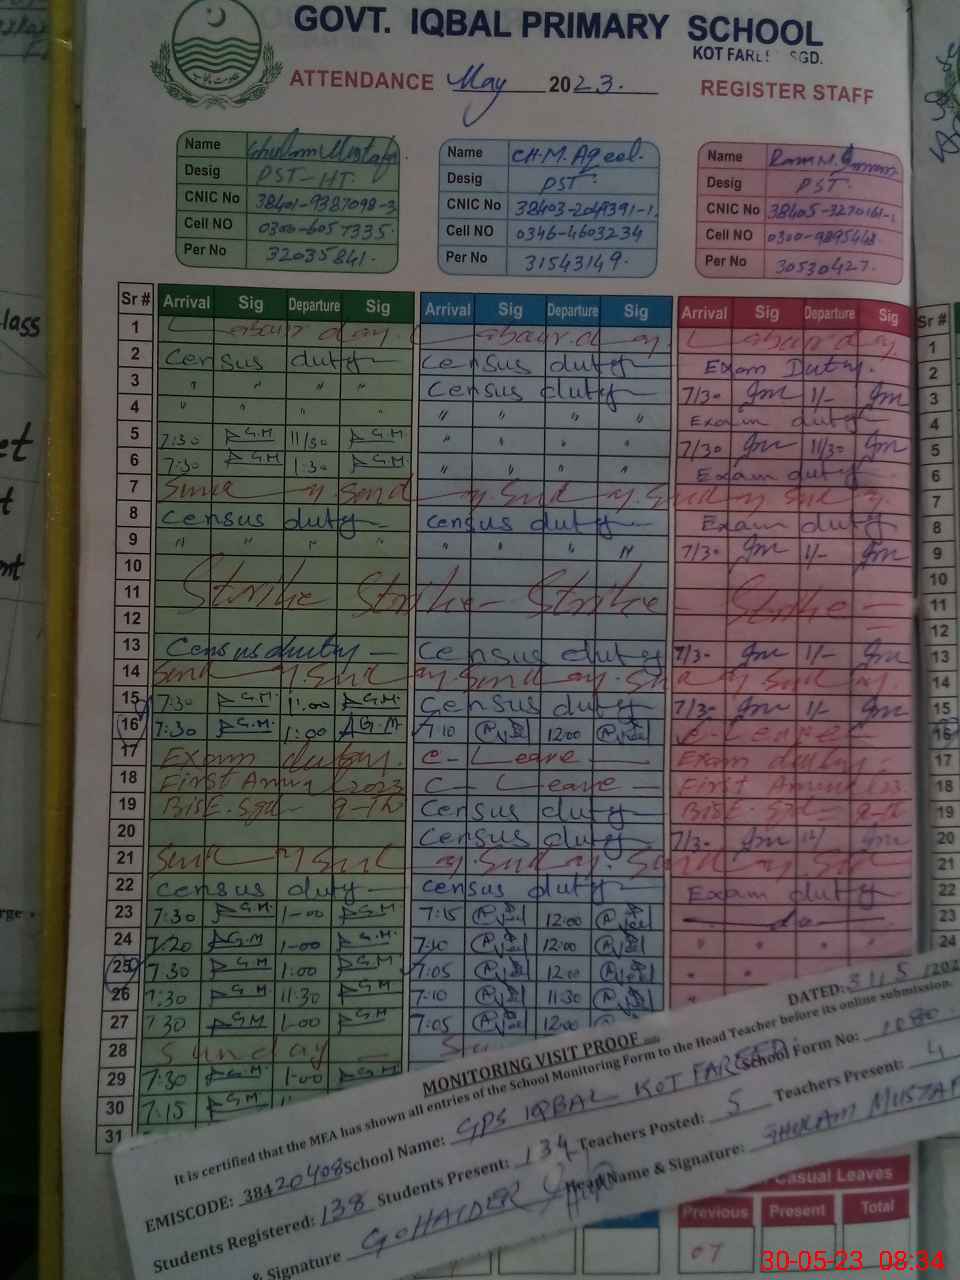 GOVT. IQBAL PRIMARY SCHOOL
KOT FAR SGD.
ATTENDANCE May 2023. REGISTER STAFF
Name Ghulam Mustafa
Desig PST-HT.
CNIC No 38401-9387098-3
Cell NO 0300-6057335.
Per No 32035841.
Name CH.M.Aqeel.
Desig PST.
CNIC No 38403-2049391-1.
Cell NO 0346-4603234
Per No 31543149.
Name
Desig PST.
CNIC No 38405-3270161-
Cell NO 0300-9895448
Per No 30530427.
Sr # Arrival Sig Departure Sig Arrival Sig Departure Sig Arrival Sig Departure Sig Sr #
1 Labour day. Labour day. Labour day 1
2 Census duty Census duty Exam Duty. 2
3 " " " " Census duty 7/30 1/- 3
4 " " " " " " " Exam duty 4
5 7:30 G.M 11/30 G.M. " " " " 7/30 11/30 5
6 7:30 G.M 1:30 G.M. " " " " Exam duty 6
7 Sunday. Sunday. Sunday. Sunday Sunday. 7
8 Census duty Census duty Exam duty 8
9 " " " " " " " " 7/30 1/- 9
10 10
11 Strike Strike - Strike - Strike - 11
12 12
13 Census duty - Census duty 7/30 1/- 13
14 Sunday. Sunday. Sunday. Sunday. Sunday. 14
15 7:30 G.M. 1:00 G.M. Census duty 7/30 1/- 15
16 7:30 G.M. 1:00 G.M 7:10 12:00 c-Leave - 16
17 Exam duty. c- Leave - Exam duty - 17
18 First Annual 2023 C- Leave - First Annual 18
19 BISE. Sgd- 9-Th Census duty BISE. Sgd- 9-th 19
20 Census duty 7/30 20
21 Sunday Sunday. Sunday. Sunday. 21
22 Census duty - Census duty - Exam duty 22
23 7:30 G.M. 1-00 G.M. 7:15 12:00 do 23
24 7:20 G.M 1-00 G.M. 7:10 12:00 " " " " 24
25 7:30 G.M 1:00 G.M 7:05 12:00
26 7:30 G.M 11:30 G.M 7:10 11:30
27 7:30 G.M 1-00 G.M 7:05 12:00
28 Sunday - Su
29 7:30 G.M. 1-00 G.M
30 7:15 G.M
31
MONITORING VISIT PROOF DATED: 31/5/202
It is certified that the MEA has shown all entries of the School Monitoring Form to the Head Teacher before its online submission.
EMISCODE: 38420408 School Name: GPS IQBAL KOT FAREED. School Form No: 1080.
Students Registered: 138 Students Present: 134 Teachers Posted: 5 Teachers Present: 4
& Signature G. HAIDER Head Name & Signature: GHULAM MUSTAF
Casual Leaves
Previous Present Total
07
30-05-23 08:34